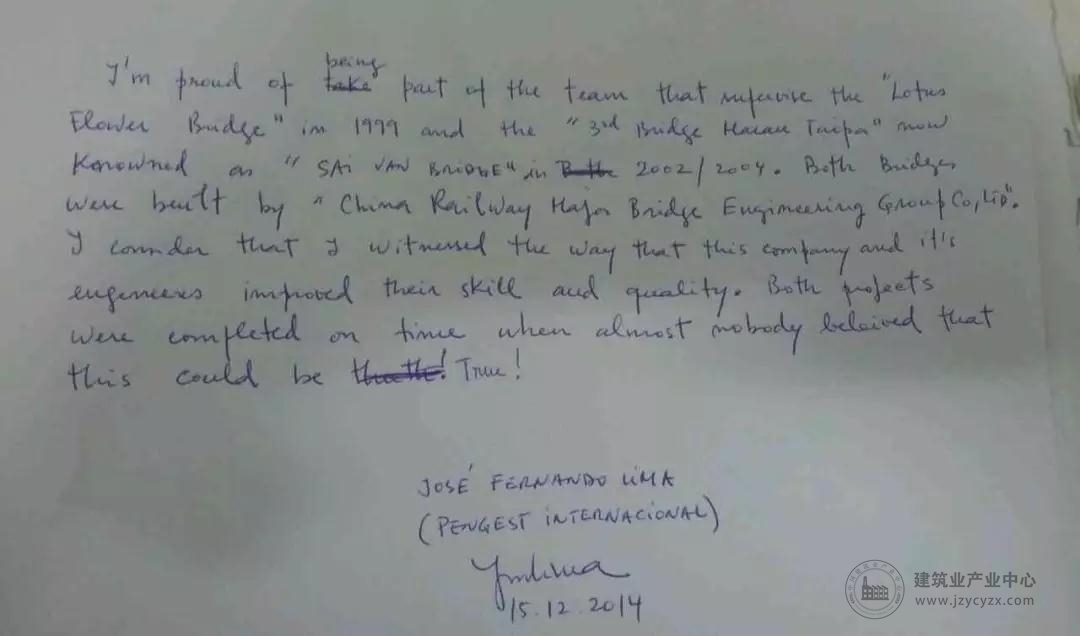 I'm proud of being take part of the team that supervise the "Lotus
Flower Bridge" in 1999 and the "3rd Bridge Macau Taipa" now
Knowned as "SAI VAN BRIDGE" in Both 2002/2004. Both Bridges
were built by "China Railway Major Bridge Engineering Group Co, LTD".
I consider that I witnessed the way that this company and it's
engineers improved their skill and quality. Both projects
were completed on time when almost nobody beleived that
this could be True!
JOSÉ FERNANDO LIMA
(PENGEST INTERNACIONAL)
15.12.2014
建筑业产业中心
www.jzycyzx.com